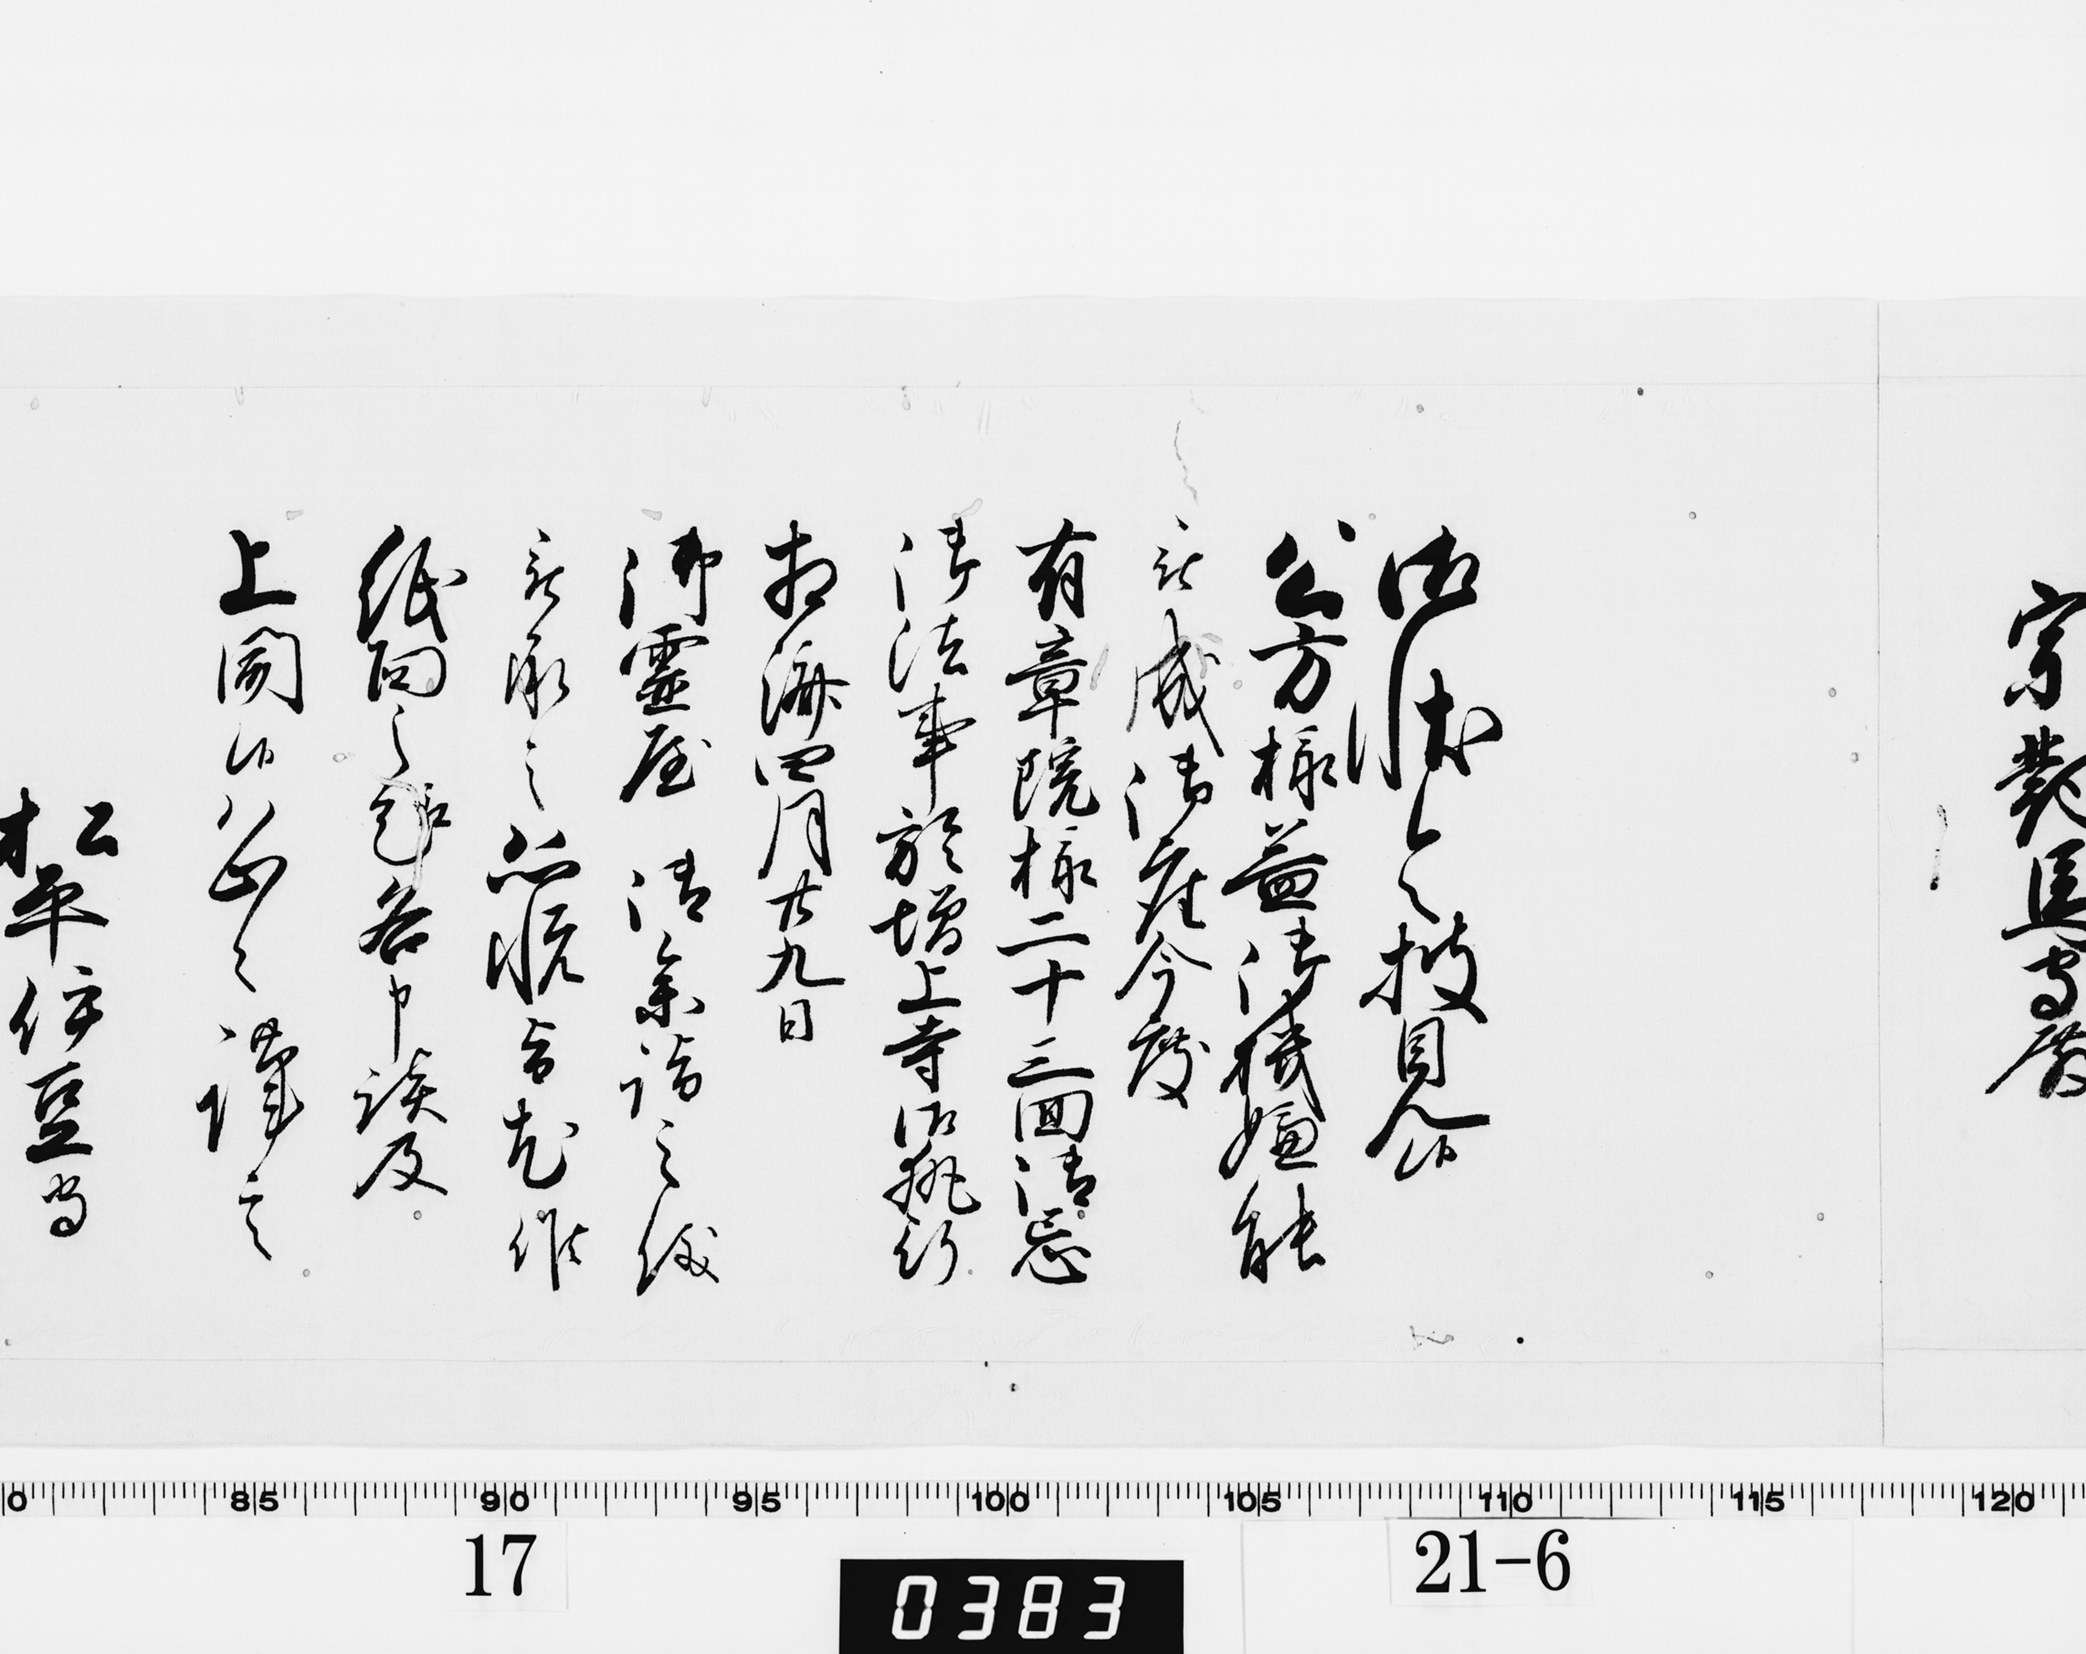 宗對馬守殿
御状令披見候
公方様益御機嫌能
被成御座今度
有章院様二十三回御忌
御法事於増上寺御執行
相済四月廿九日
御霊屋 御参詣之儀
被承之恐悦旨尤候
紙面之趣各申談及
上聞候恐々謹言
松平伊豆守
85 90 95 100 105 110 115 120
17
21-6
0383